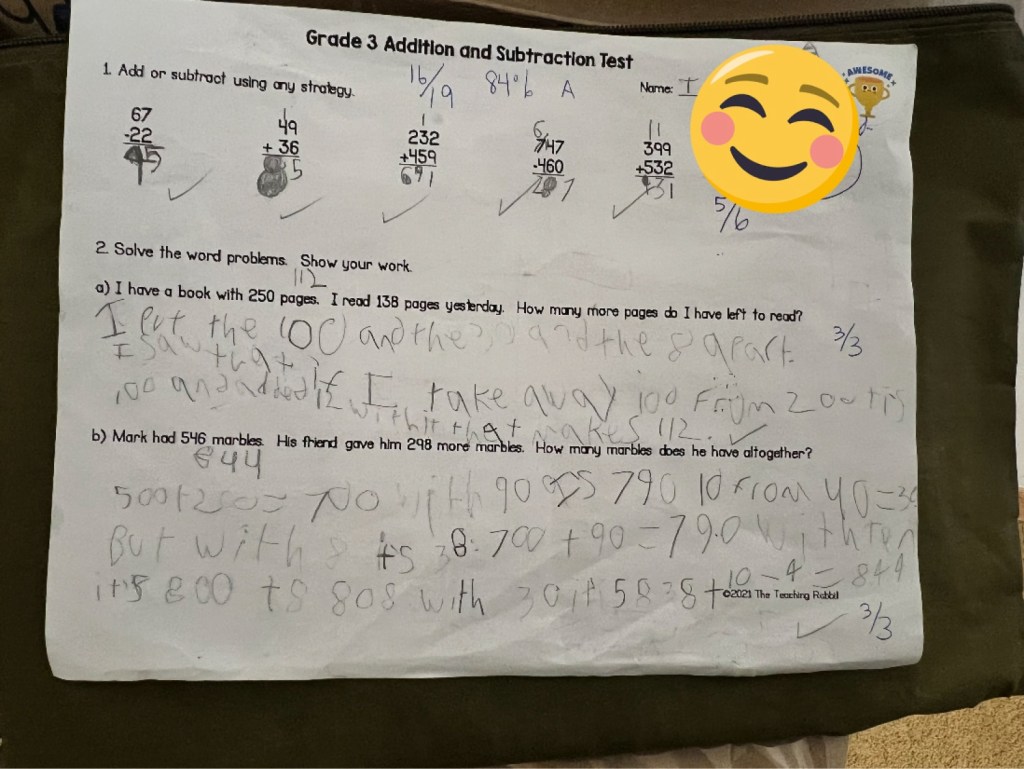 Grade 3 Addition and Subtraction Test
1. Add or subtract using any strategy.
16/19 84% A
Name: I
AWESOME
67
-22
45
1
49
+ 36
85
1
232
+459
691
6
747
-460
287
11
399
+532
931
5/6
2. Solve the word problems. Show your work.
112
a) I have a book with 250 pages. I read 138 pages yesterday. How many more pages do I have left to read?
I put the 100 and the 30 and the 8 apart. 3/3
I saw that
if I take away 100 from 200 its
100 and added 12 with it that makes 112.
b) Mark had 546 marbles. His friend gave him 298 more marbles. How many marbles does he have altogether?
844
500+200= 700 with 90 its 790 10 from 40=30
But with 8 its 38. 700 + 90 = 790 with ten
it's 800 + 8 808 with 30 it's 838 + 10 - 4 = 844
©2021 The Teaching Rabbit
3/3